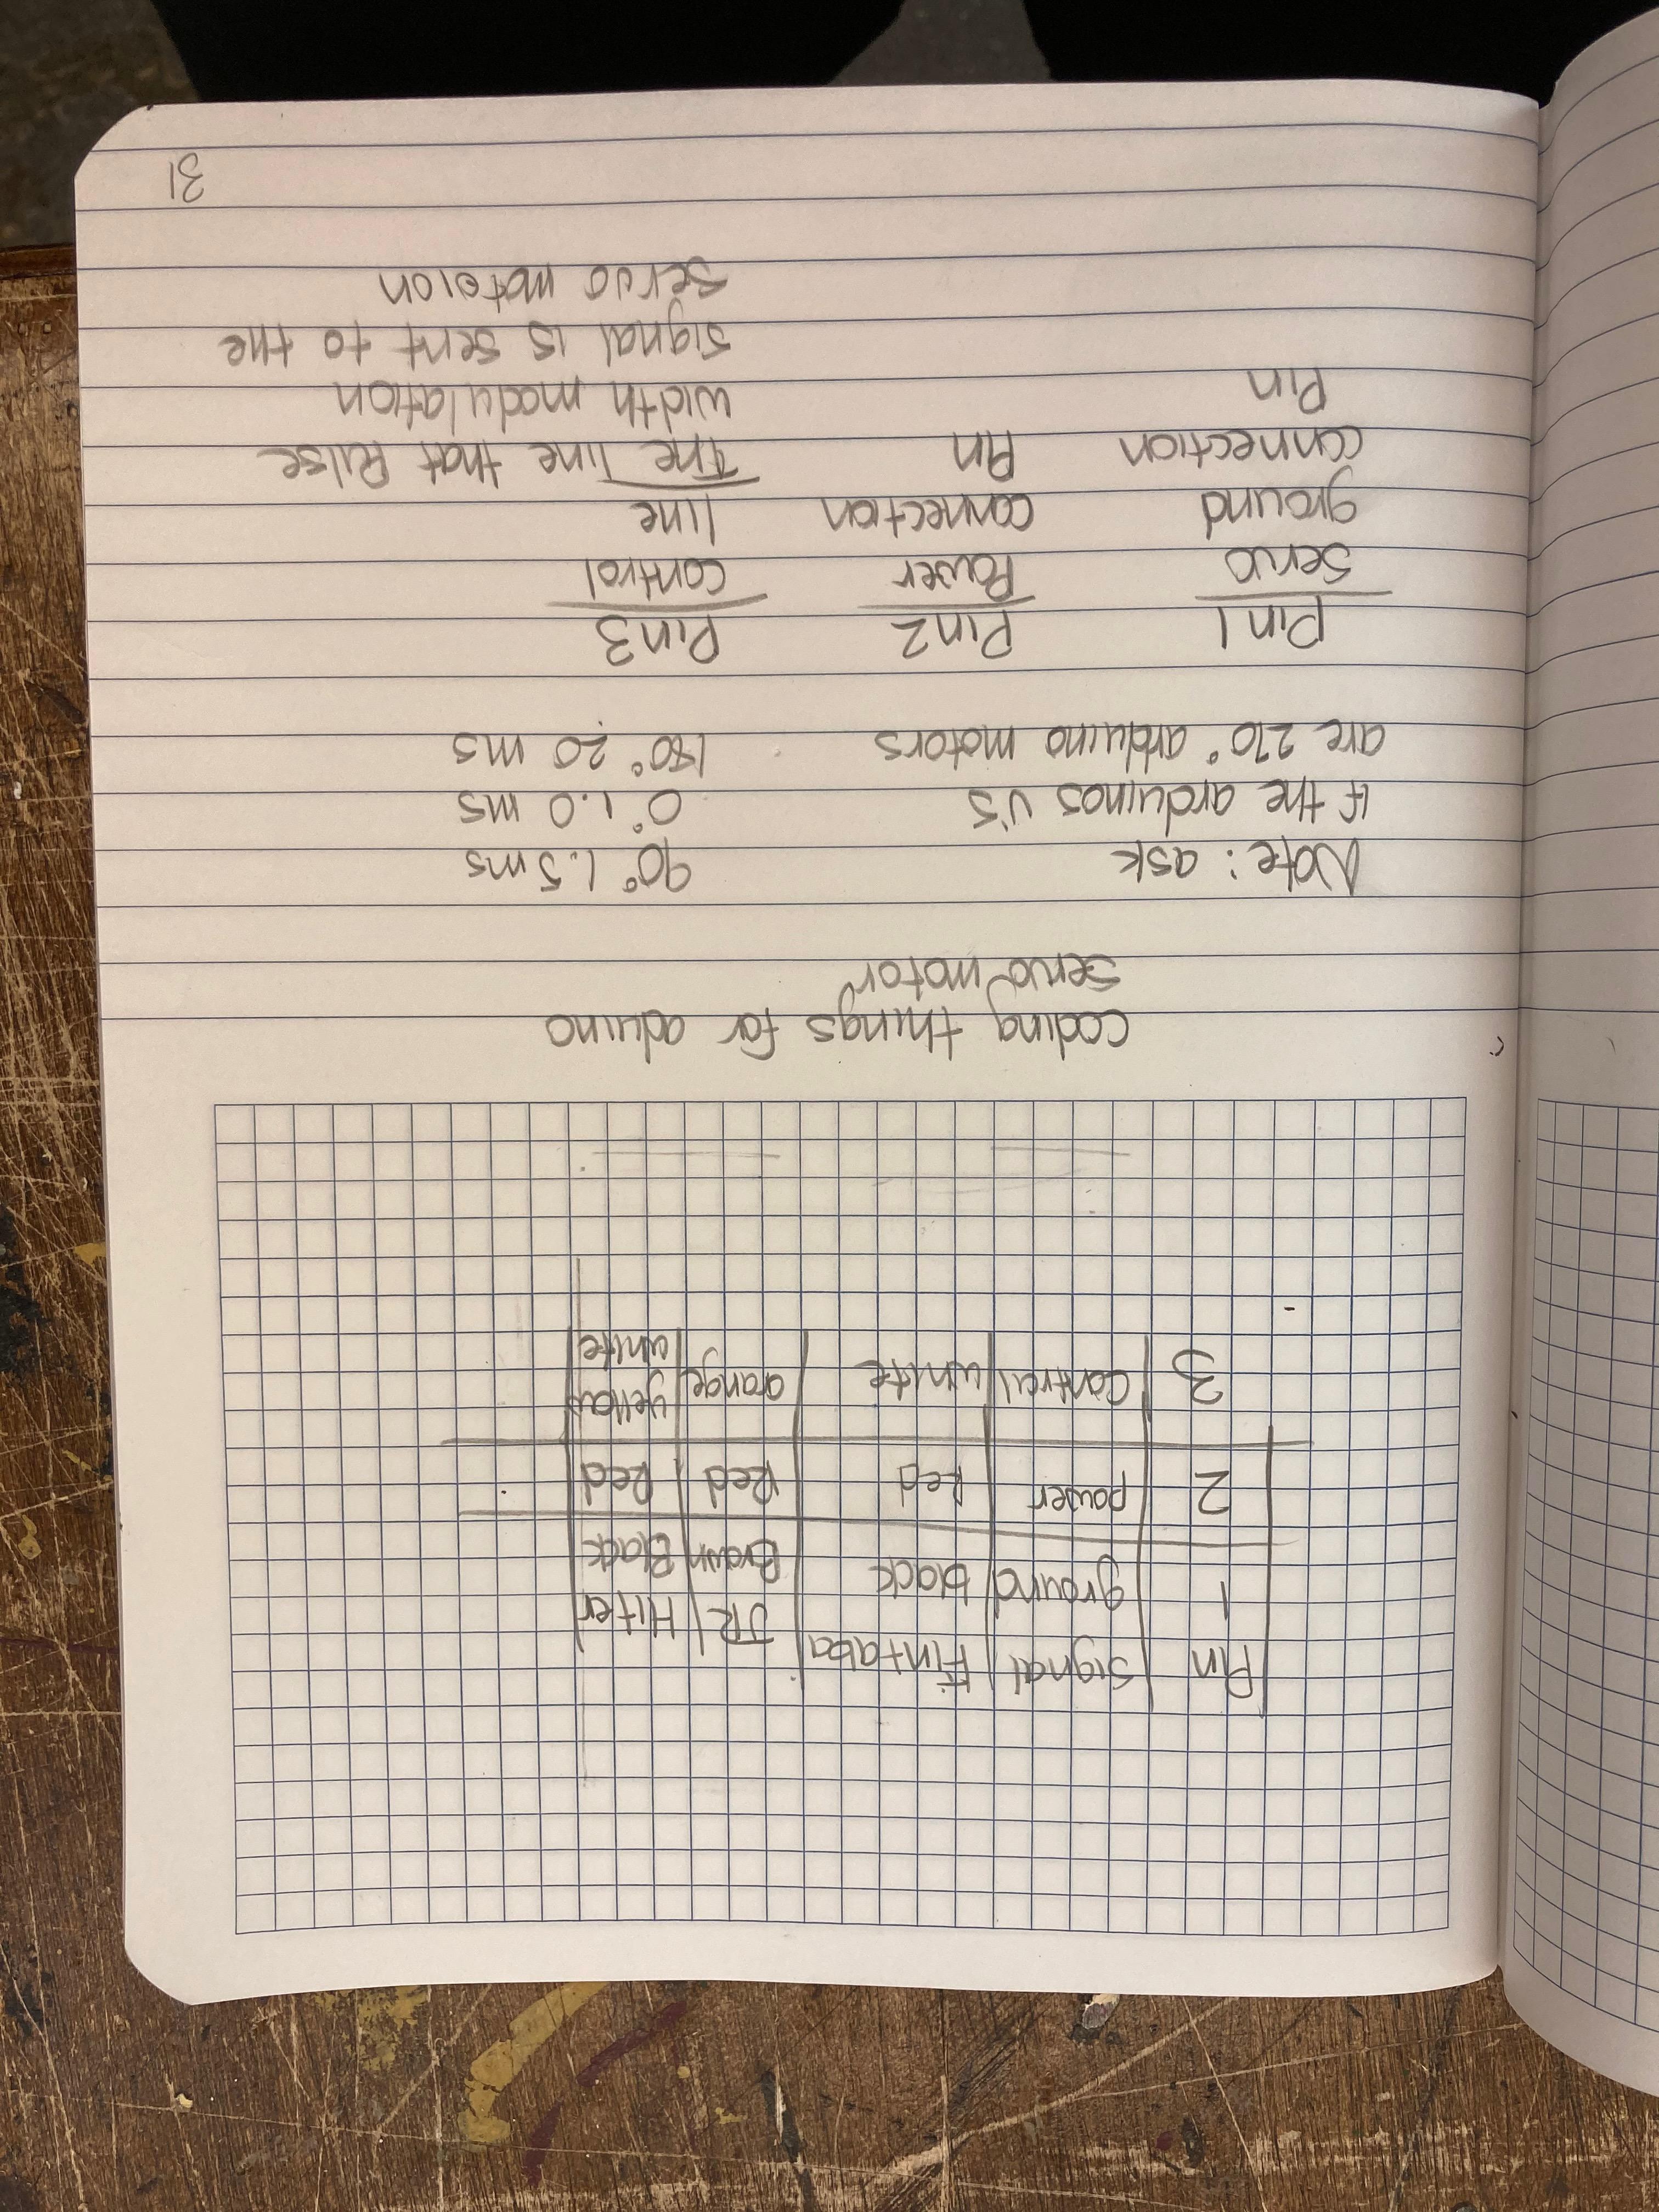 Pin signal Fintaba JR Hiter
1 ground black Brown Black
2 power Red Red Red
3 Control white orange yellow
white
coding things for aduino
servo motor
Note: ask 90° 1.5 ms
if the arduinos v's 0° 1.0 ms
are 270° arduino motors 180° 2.0 ms
Pin 1 Pin 2 Pin 3
Servo Power control
ground connection line
connection Pin The line that Pulse
Pin width modulation
signal is sent to the
servo motoion
31